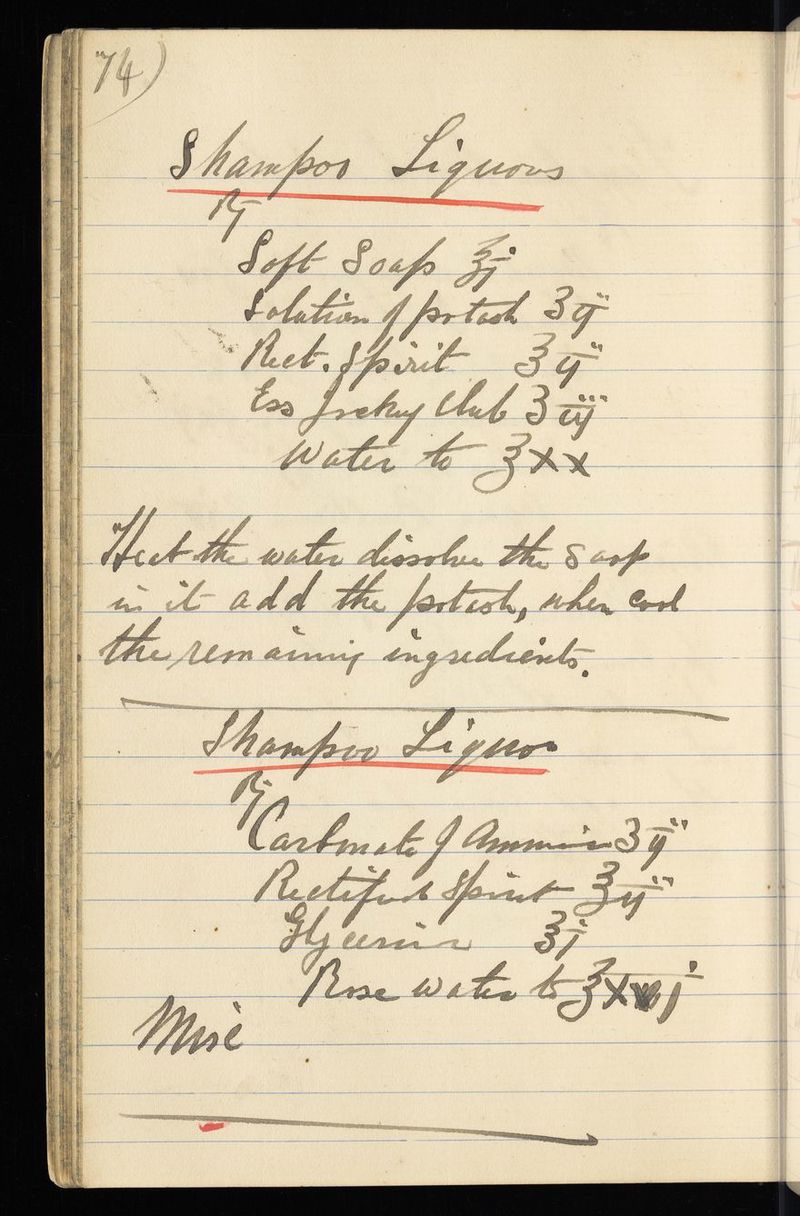 74)
Shampoo Liquors
℞
Soft Soap ℥j
Solution of potash ʒij
Rect. Spirit ʒij
Ess Jockey Club ʒiij
Water to ℥xx
Heat the water dissolve the soap
in it add the potash, when cool
the remaining ingredients.
Shampoo Liquor
℞
Carbonate of Ammonia ʒij
Rectified Spirit ℥ij
Glycerine ℥j
Rose water to
Misc